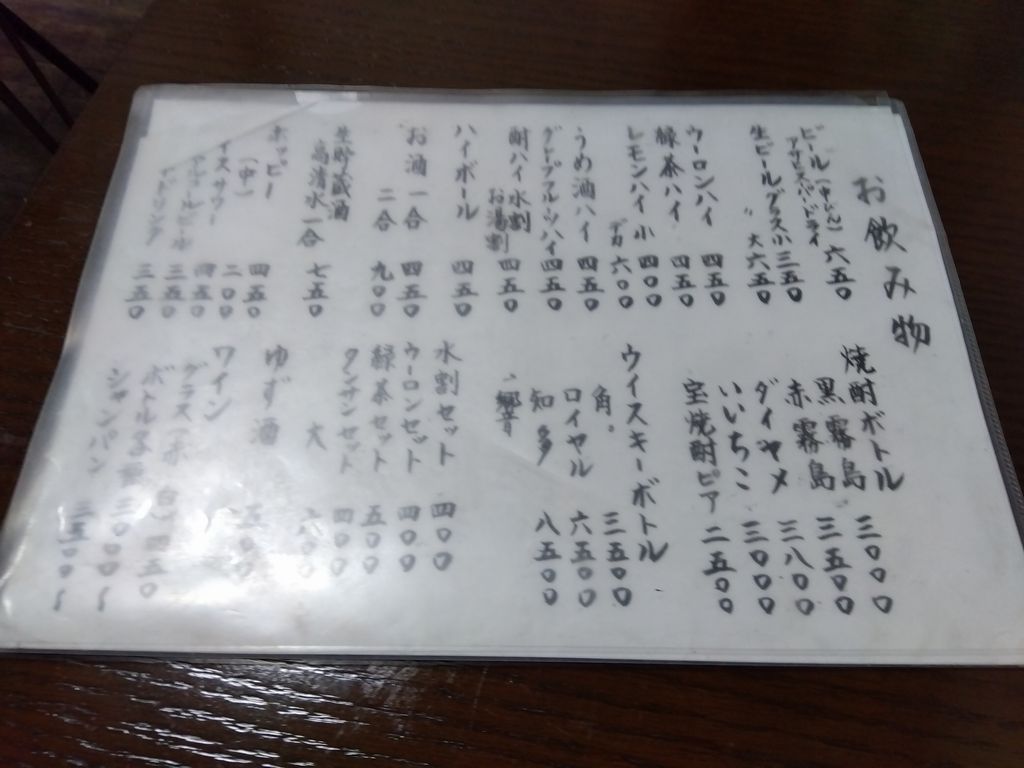 お飲み物
ビール(中びん) 六五〇
アサヒスーパードライ
生ビールグラス小 三五〇
〃 大 六五〇
ウーロンハイ 四五〇
緑茶ハイ 四五〇
レモンハイ 小 四〇〇
デカ 六〇〇
うめ酒ハイ 四五〇
グレープフルーツハイ 四五〇
酎ハイ水割 四五〇
お湯割
ハイボール 四五〇
お酒 一合 四五〇
二合 九〇〇
生貯蔵酒
高清水一合 七五〇
ホッピー 四五〇
(中) 二〇〇
アイスサワー 四五〇
ノンアルコールビール 三五〇
ソフトドリンク 三五〇
焼酎ボトル
黒霧島
赤霧島
ダイヤメ
いいちこ
宝焼酎ピア 二五〇〇
三〇〇〇
三五〇〇
三八〇〇
三〇〇〇
ウイスキーボトル
角。 三五〇〇
ロイヤル 六五〇〇
知多 八五〇〇
〃響
水割セット 四〇〇
ウーロンセット 四〇〇
緑茶セット 五〇〇
タンサンセット 四〇〇
大 六〇〇
ゆず酒
ワイン
グラス(赤 白) 四五〇
ボトル 三〇〇〇〜
シャンパン 三五〇〇〜